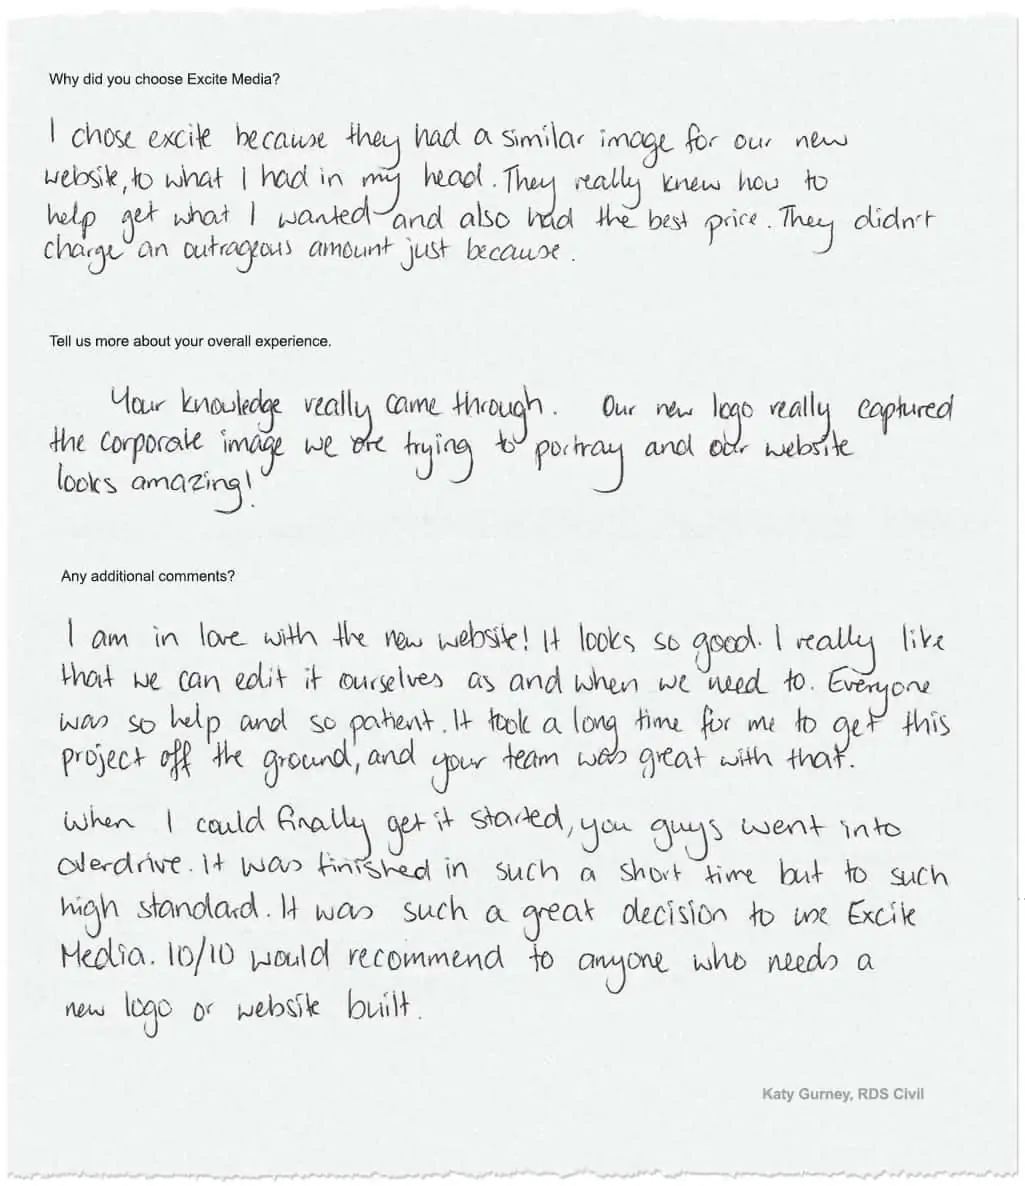 Why did you choose Excite Media?
I chose excite because they had a similar image for our new
website, to what I had in my head. They really knew how to
help get what I wanted and also had the best price. They didn't
charge an outrageous amount just because.
Tell us more about your overall experience.
Your knowledge really came through. Our new logo really captured
the corporate image we are trying to portray and our website
looks amazing!
Any additional comments?
I am in love with the new website! It looks so good. I really like
that we can edit it ourselves as and when we need to. Everyone
was so help and so patient. It took a long time for me to get this
project off the ground, and your team was great with that.
When I could finally get it started, you guys went into
overdrive. It was finished in such a short time but to such
high standard. It was such a great decision to use Excite
Media. 10/10 would recommend to anyone who needs a
new logo or website built.
Katy Gurney, RDS Civil